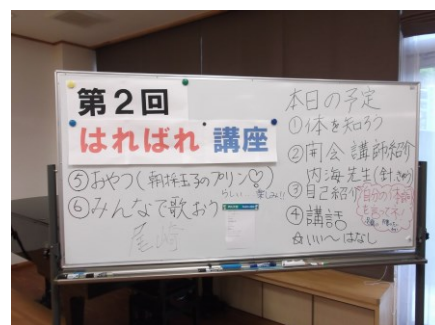 第2回
はればれ 講座
本日の予定
①体を知ろう
②開会 講師紹介
内海先生(針きゅう)
③自己紹介
④講話
☆いい〜はなし
⑤おやつ(朝採玉子のプリン♡)
らしい 楽しみ!!
⑥みんなで歌おう
尾崎